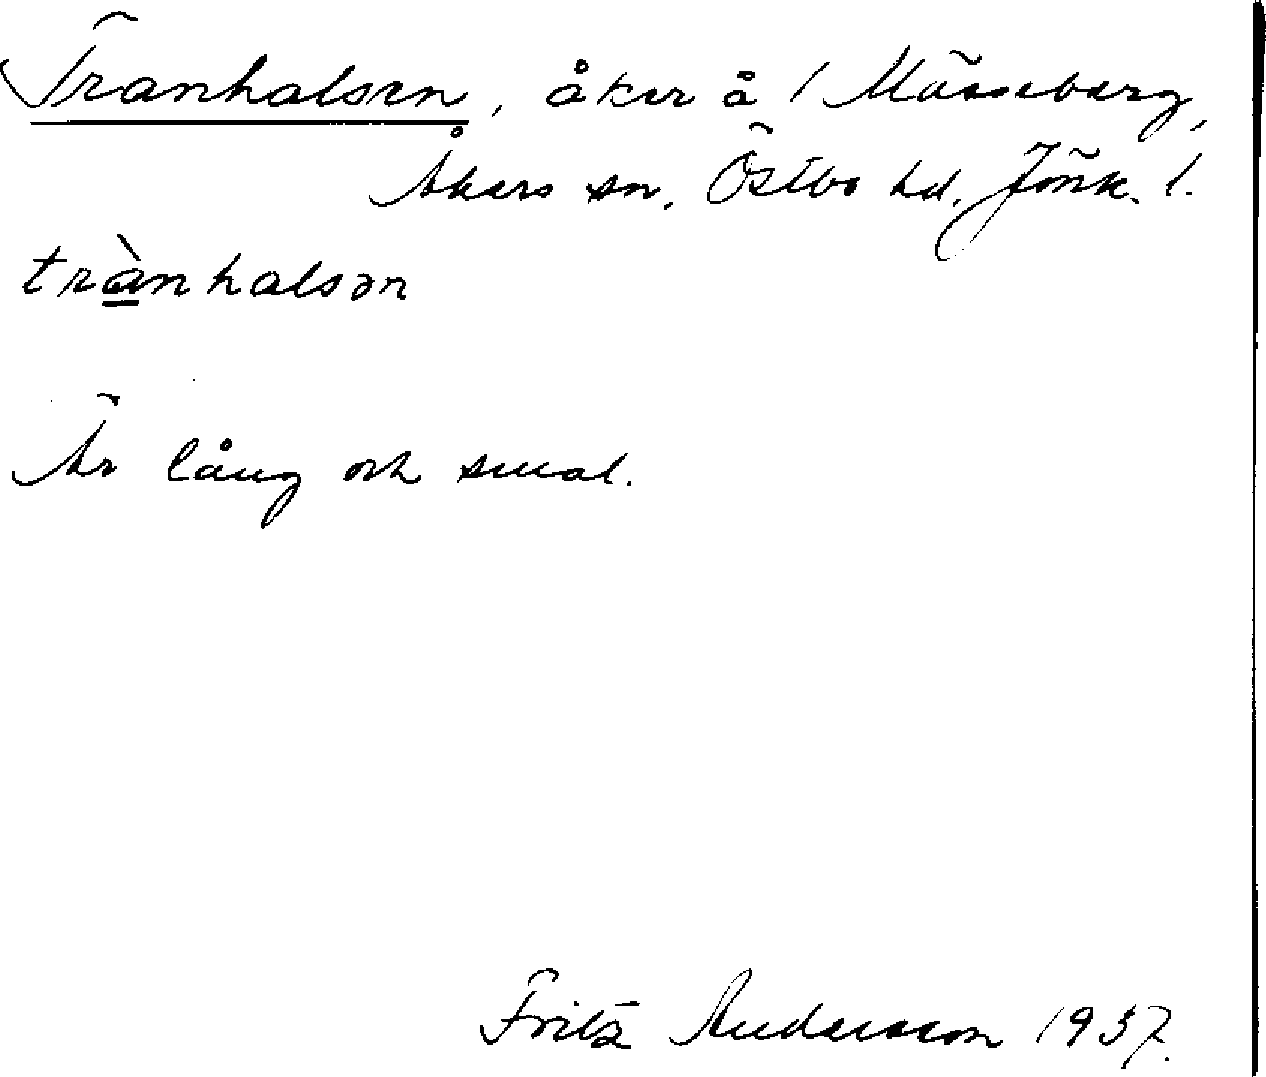 Tranhalsen, åker å 1 Mässeberg,
Åkers sn. Östbo hd. Jönk. l.
trànhalsən
Är lång och smal.
Fritz Andersson 1937.